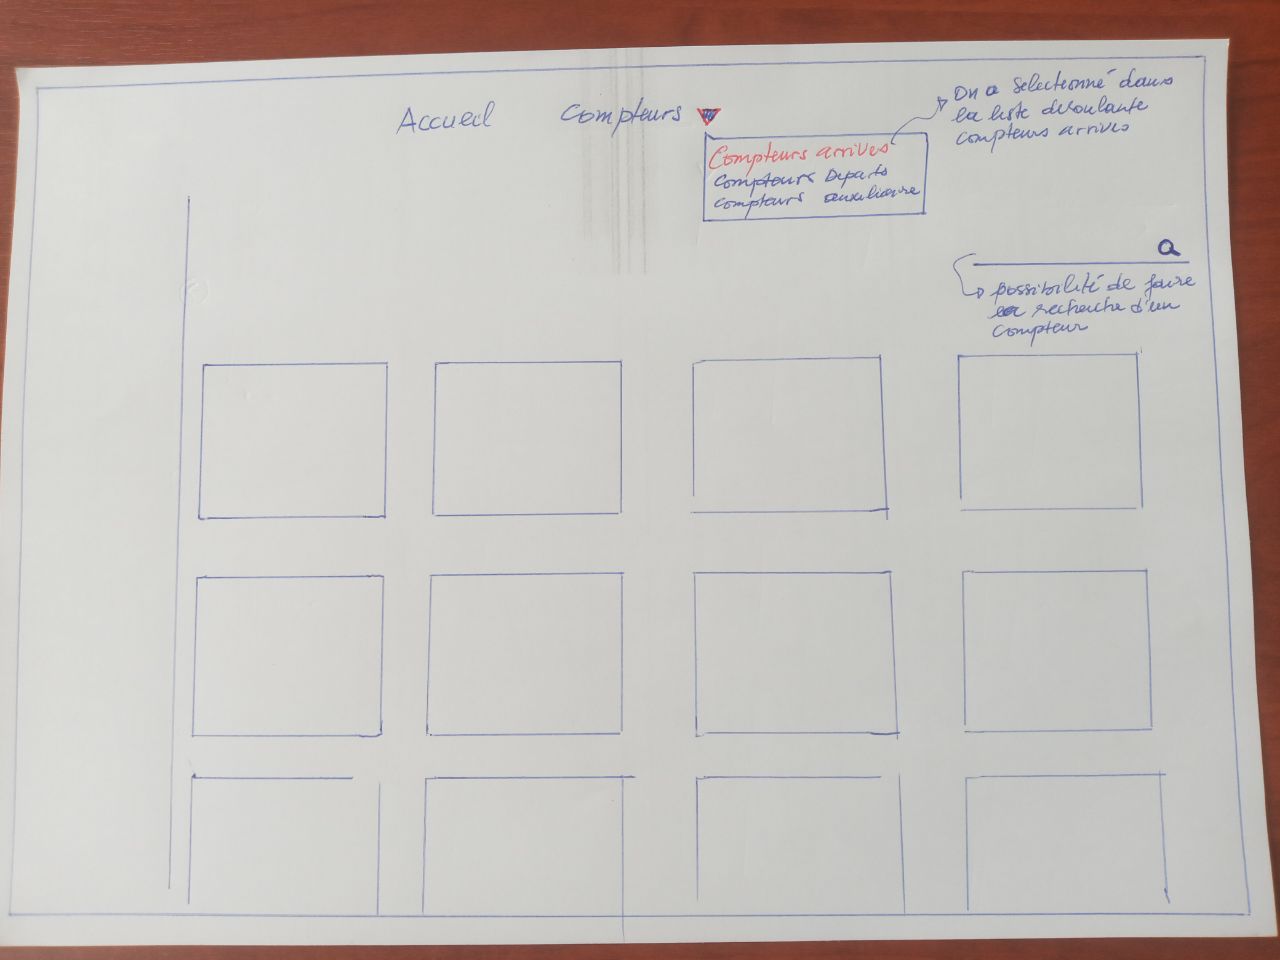 Accueil
Compteurs
Compteurs arrivés
Compteurs Departs
Compteurs auxiliaire
On a sélectionné dans
la liste déroulante
compteurs arrivés
possibilité de faire
la recherche d'un
compteur